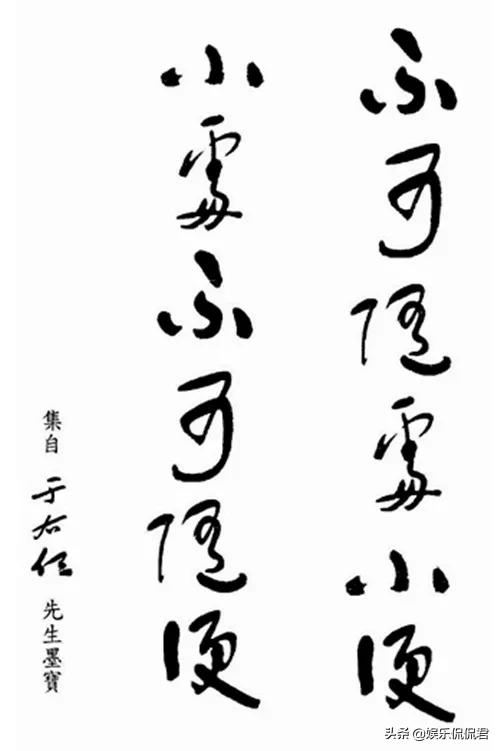 不可隨處小便
小處不可隨便
集自 于右任 先生墨寶
头条 @娱乐侃侃君